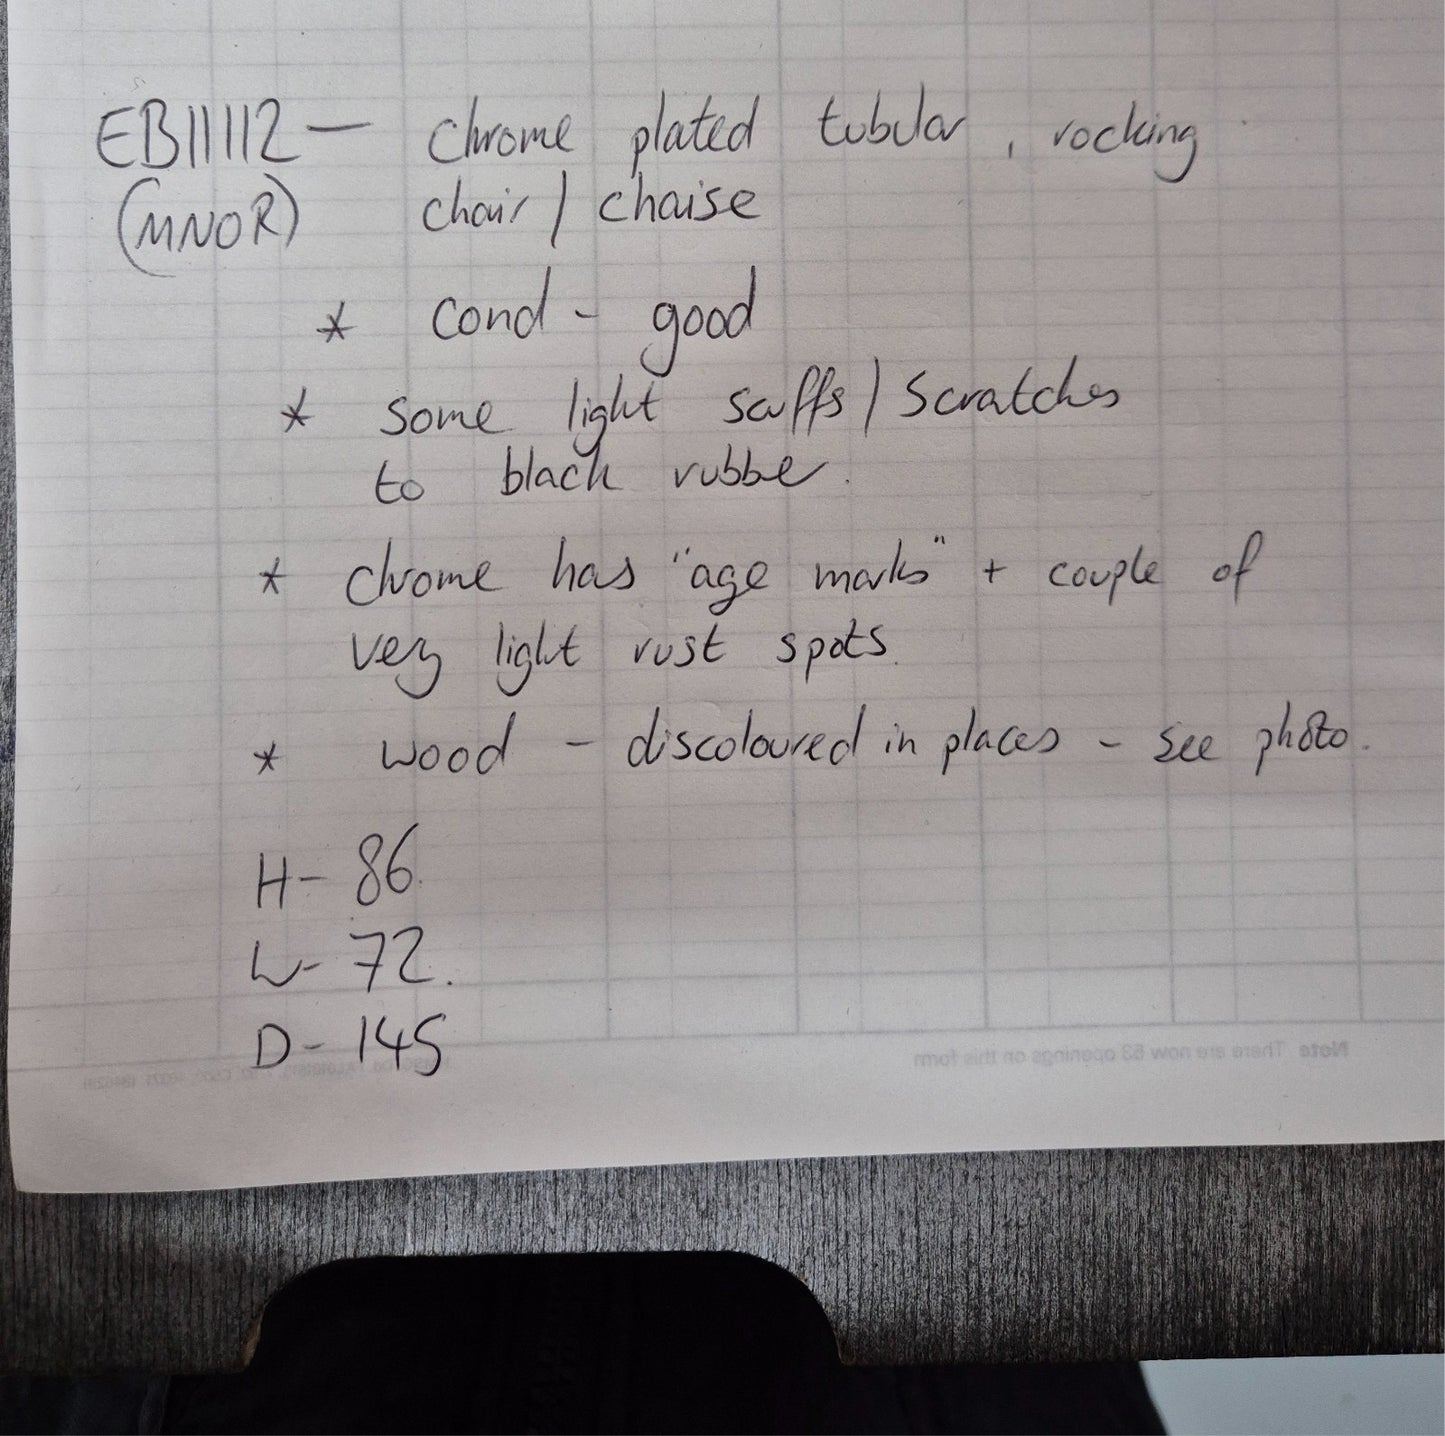 EB11112 — Chrome plated tubular, rocking
(MNOR) chair / chaise
* cond - good
* some light scuffs / scratches
to black rubber.
* chrome has "age marks" + couple of
very light rust spots.
* wood - discoloured in places - see photo.
H - 86.
W - 72.
D - 145
Note There are now 53 openings on this form